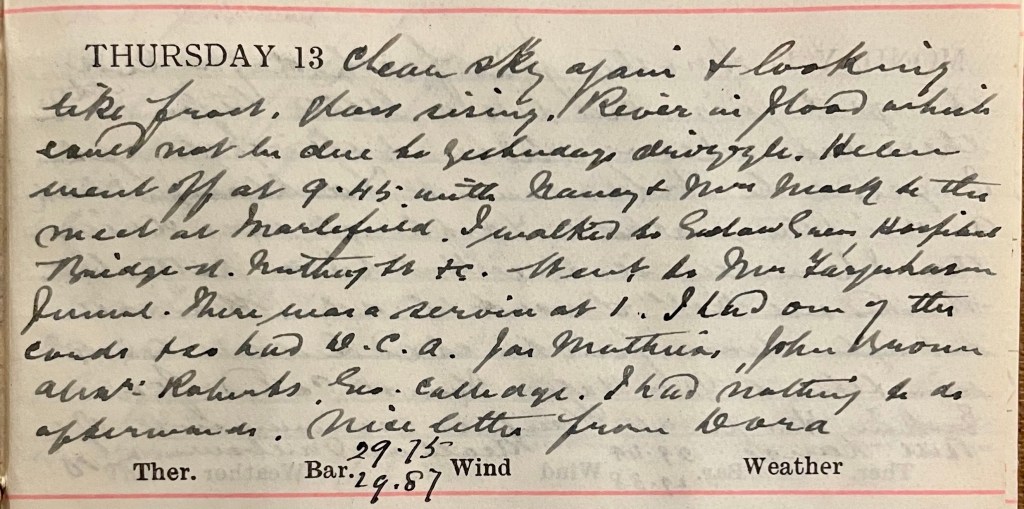 THURSDAY 13 Clear sky again & looking
like frost. Glass rising. River in flood which
could not be due to yesterdays drizzle. Helen
went off at 9.45 with Nancy & Mrs Mack to the
meet at Marlefield. I walked to Green Hospital
Bridge St. St &c. Went to Mrs Farquharson
funeral. There was a service at 1. I had one of the
cords & so had D.C.A. Jas Mathieson John Brown
Alexr. Roberts, Geo. I had nothing to do
afterwards. Nice letter from Dora
Ther. Bar. 29.75 Wind Weather
29.87